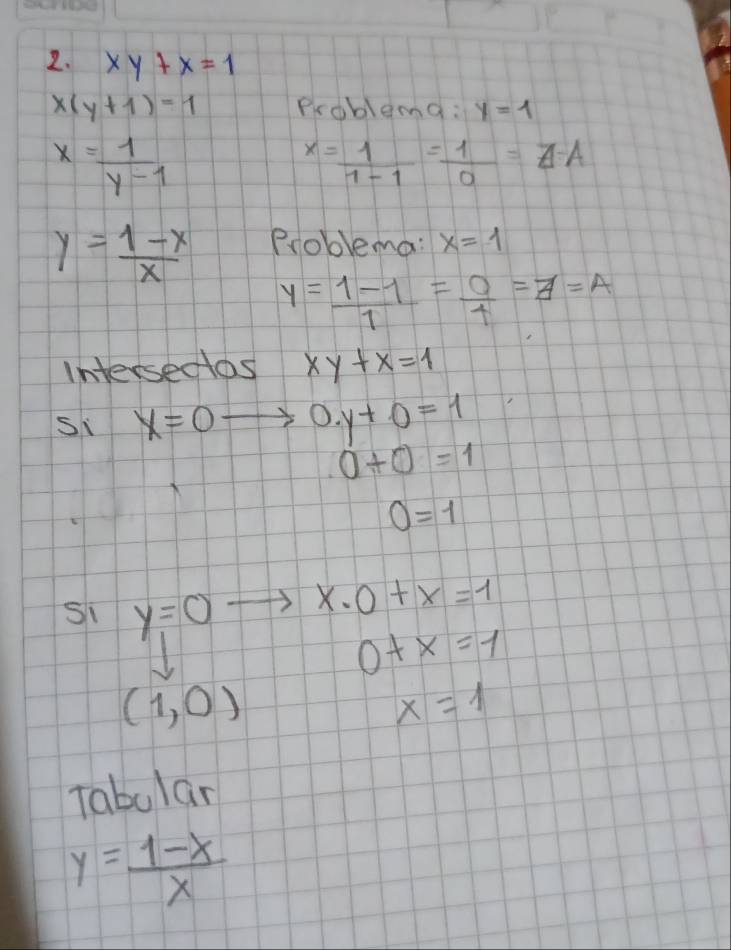 2. xy+x=1
x(y+1)=1 Problema: y=1
x = 1/(y-1) x = 1/(1-1) = 1/0 = ∄=A
y = (1-x)/x Problema: x=1
y = (1-1)/1 = 0/1 = ∄=A
Intersectos xy+x=1
Si x=0 → 0.y+0=1
0+0=1
0=1
Si y=0 → x.0+x=1
↓ 0+x=1
(1,0) x=1
Tabular
y = (1-x)/x